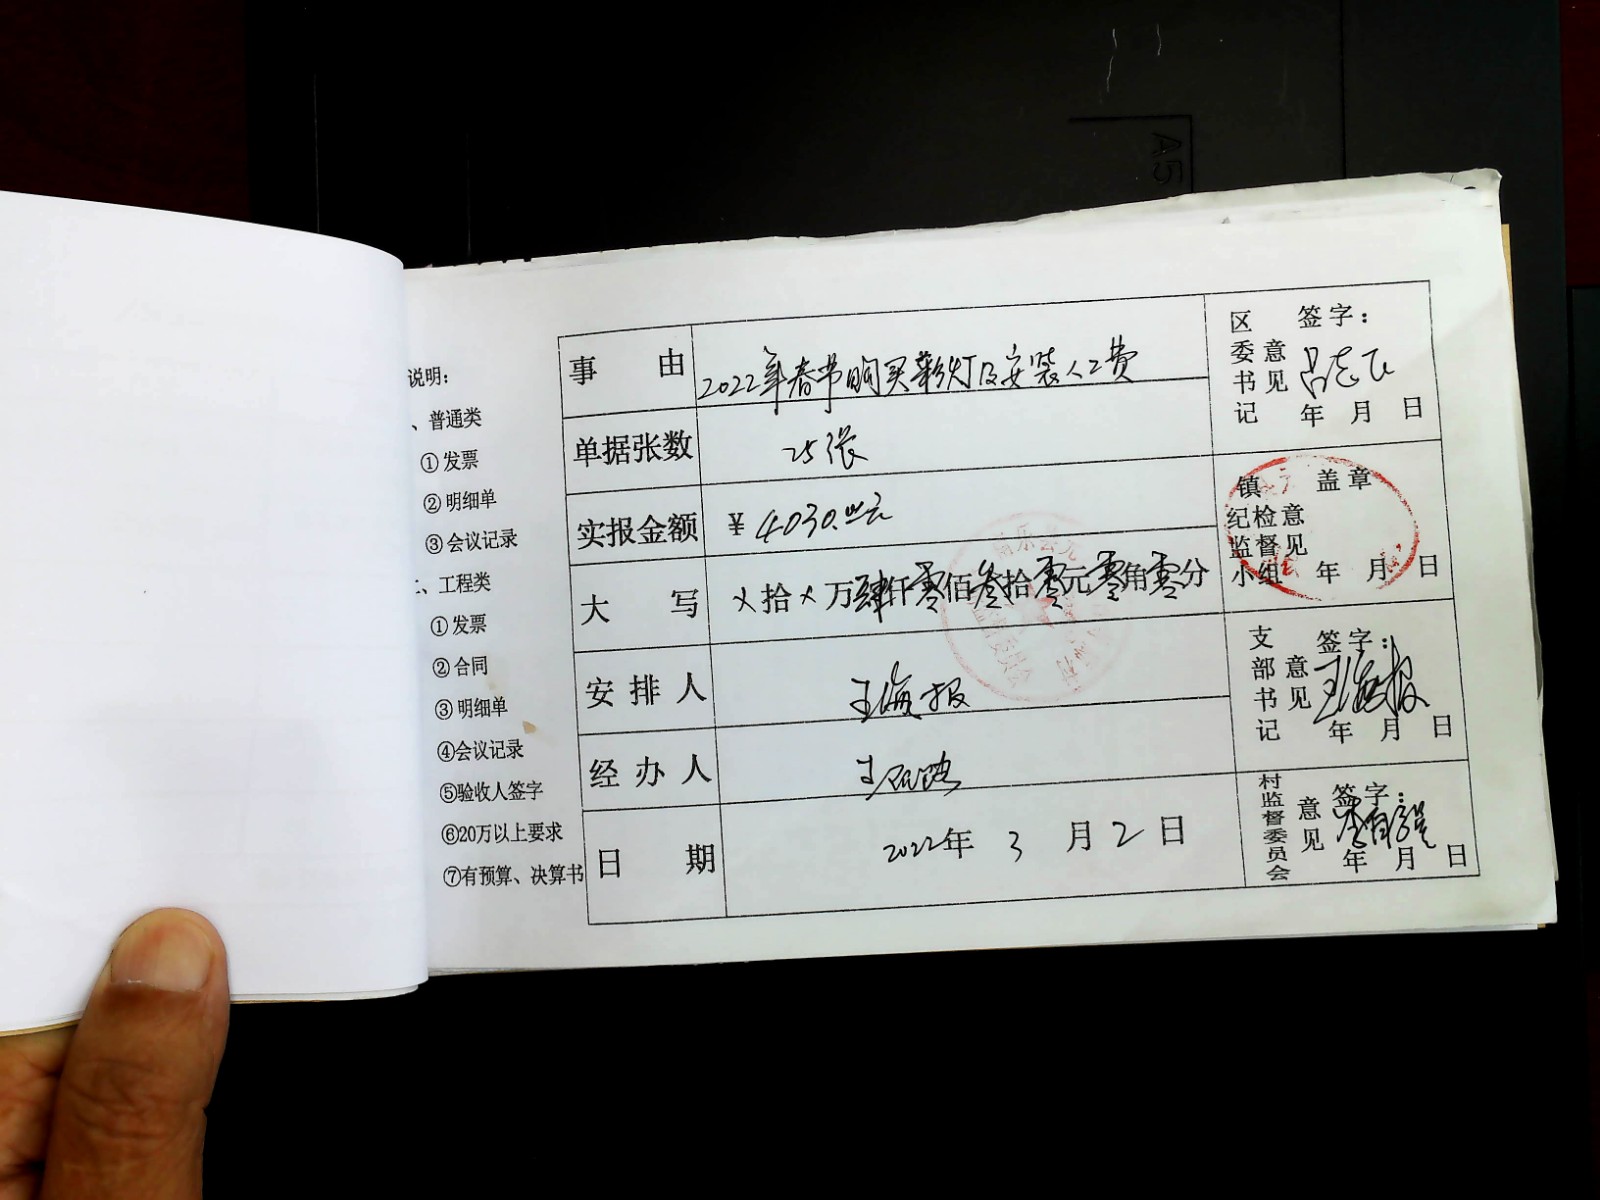 说明:
、普通类
①发票
②明细单
③会议记录
二、工程类
①发票
②合同
③明细单
④会议记录
⑤验收人签字
⑥20万以上要求
⑦有预算、决算书
事由 2022年春节购买彩灯及安装人工费
单据张数 25张
实报金额 ¥4030.00元
大写 ×拾×万肆仟零佰叁拾零元零角零分
安排人 王海报
经办人 王
日期 2022年3月2日
区委书记意见 签字: 吕志飞
年 月 日
镇纪检监督小组意见 盖章
年 月 日
支部书记意见 签字: 王海报
年 月 日
村监督委员会意见 签字:
年 月 日
A5